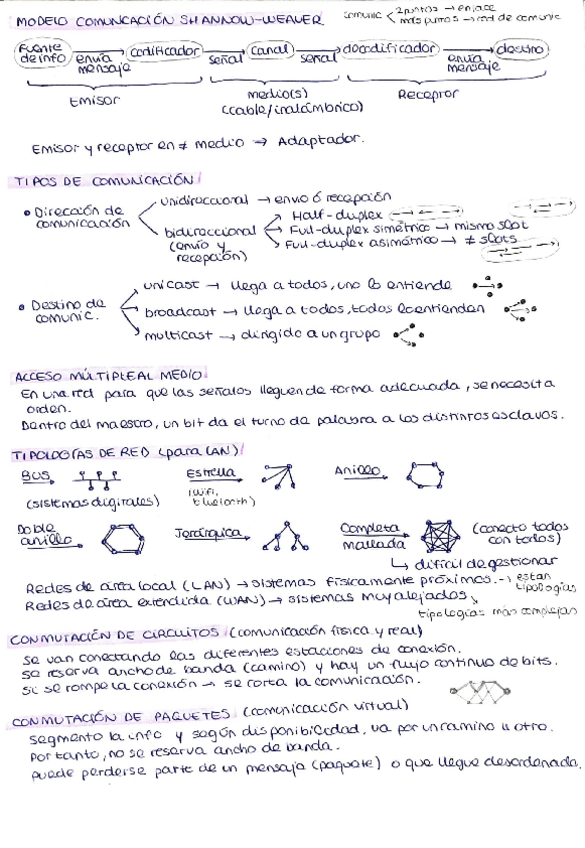 MODELO COMUNCACIÓN SHANNOW-WEAVER
comunic 2 puntos → enlace
más puntos → red de comunic
Fuente de info → envía mensaje → codificador → señal → canal → señal → decodificador → envía mensaje → destino
Emisor
medio(s) (cable/inalámbrico)
Receptor
Emisor y receptor en ≠ medio → Adaptador.
TIPOS DE COMUNICACIÓN
• Dirección de comunicación
unidireccional → envío ó recepción
bidireccional (envío y recepción)
Half-duplex
Full-duplex simétrico → mismo slot
Full-duplex asimétrico → ≠ slots
• Destino de comunic.
unicast → llega a todos, uno lo entiende
broadcast → llega a todos, todos lo entienden
multicast → dirigido a un grupo
ACCESO MÚLTIPLE AL MEDIO
En una red para que las señales lleguen de forma adecuada, se necesita
orden.
Dentro del maestro, un bit da el turno de palabra a los distintos esclavos.
TIPOLOGÍAS DE RED (para LAN)
BUS
Estrella
Anillo
(sistemas digitales)
(wifi, bluetooth)
Doble anillo
Jerárquica
Completa mallada
(conecto todos con todos)
↳ difícil de gestionar
Redes de área local (LAN) → sistemas físicamente próximos. → estan tipologías
Redes de área extendida (WAN) → sistemas muy alejados
tipologías más complejas
CONMUTACIÓN DE CIRCUITOS (comunicación física y real)
Se van conectando las diferentes estaciones de conexión.
Se reserva ancho de banda (camino) y hay un flujo continuo de bits.
Si se rompe la conexión → se corta la comunicación.
CONMUTACIÓN DE PAQUETES (comunicación virtual)
Segmento la info y según disponibilidad, va por un camino u otro.
Por tanto, no se reserva ancho de banda.
Puede perderse parte de un mensaje (paquete) o que llegue desordenada.